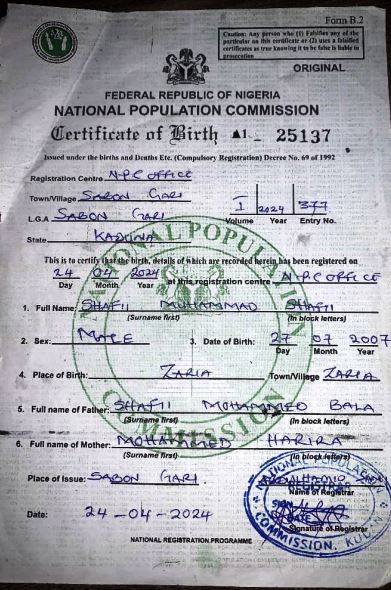 Form B.2
Caution: Any person who (1) Falsifies any of the
particular on this certificate or (2) uses a falsified
certificates as true knowing it to be false is liable to
prosecution
ORIGINAL
FEDERAL REPUBLIC OF NIGERIA
NATIONAL POPULATION COMMISSION
Certificate of Birth A1 25137
Issued under the births and Deaths Etc. (Compulsory Registration) Decree No. 69 of 1992
Registration Centre NPC OFFICE
Town/Village SABON GARI I 2024 377
L.G.A SABON GARI Volume Year Entry No.
State KADUNA
This is to certify that the birth, details of which are recorded herein has been registered on
24 04 2024 at this registration centre NPC OFFICE
Day Month Year
1. Full Name: SHAFII MUHAMMAD SHAFII
(Surname first) (In block letters)
2. Sex: MALE 3. Date of Birth: 27 07 2007
Day Month Year
4. Place of Birth: ZARIA Town/Village ZARIA
5. Full name of Father: SHAFII MOHAMMED BALA
(Surname first) (In block letters)
6. Full name of Mother: MOHAMMED HARIRA
(Surname first) (In block letters)
Place of Issue: SABON GARI
Name of Registrar
Date: 24-04-2024
Signature of Registrar
NATIONAL REGISTRATION PROGRAMME
NATIONAL POPULATION COMMISSION
REGISTRAR
SIGN
DATE